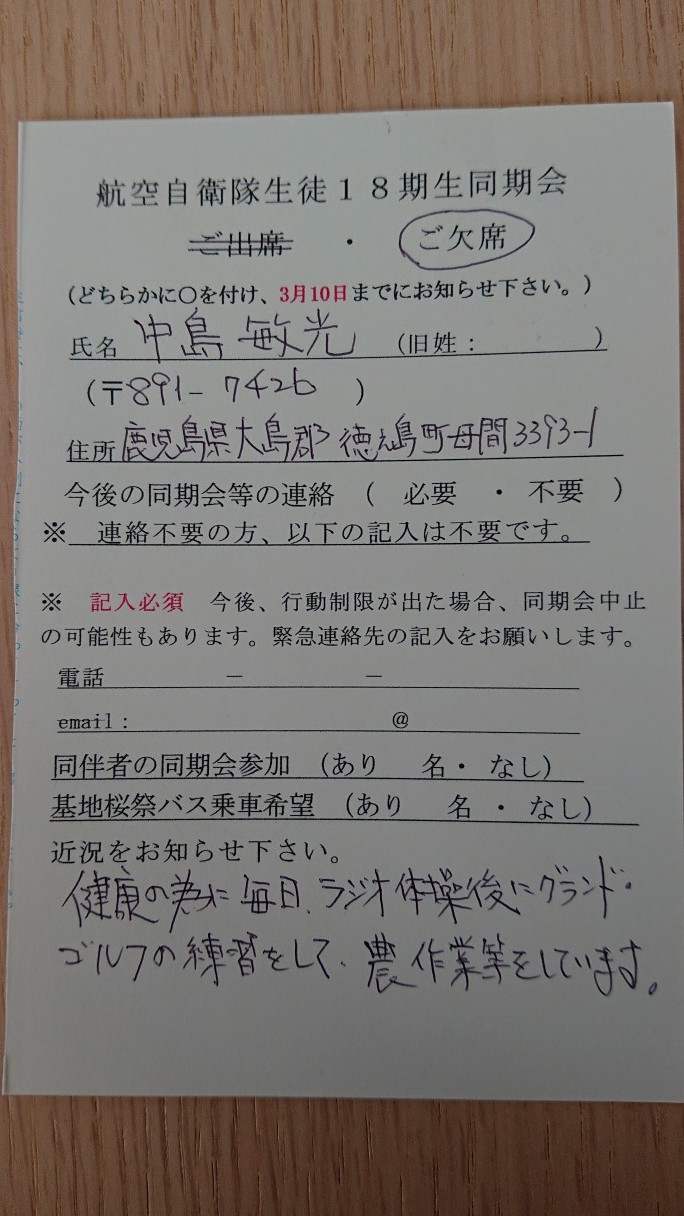 航空自衛隊生徒18期生同期会
ご出席 ・ ご欠席
(どちらかに○を付け、3月10日までにお知らせ下さい。)
氏名 中島 敏光 (旧姓: )
(〒891-7426 )
住所 鹿児島県大島郡 徳之島町母間3393-1
今後の同期会等の連絡 ( 必要 ・ 不要 )
※ 連絡不要の方、以下の記入は不要です。
※ 記入必須 今後、行動制限が出た場合、同期会中止
の可能性もあります。緊急連絡先の記入をお願いします。
電話 － －
email: @
同伴者の同期会参加 (あり 名・ なし)
基地桜祭バス乗車希望 (あり 名 ・ なし)
近況をお知らせ下さい。
健康の為に毎日、ラジオ体操後にグランド・
ゴルフの練習をして、農作業等をしています。